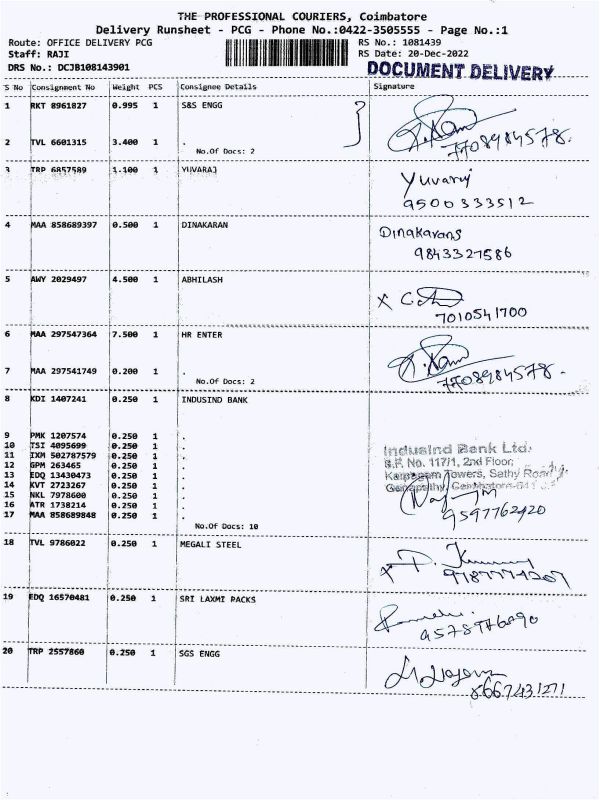 THE PROFESSIONAL COURIERS, Coimbatore
Delivery Runsheet - PCG - Phone No.:0422-3505555 - Page No.:1
Route: OFFICE DELIVERY PCG RS No.: 1081439
Staff: RAJI RS Date: 20-Dec-2022
DRS No.: DCJB108143901 DOCUMENT DELIVERY
S No Consignment No Weight PCS Consignee Details Signature
1 RKT 8961827 0.995 1 S&S ENGG
2 TVL 6601315 3.400 1 . 7708984578.
No.Of Docs: 2
3 TRP 6857589 1.100 1 YUVARAJ Yuvaraj
9500333512
4 MAA 858689397 0.500 1 DINAKARAN Dinakarans
9843327586
5 AWY 2029497 4.500 1 ABHILASH
7010541700
6 MAA 297547364 7.500 1 HR ENTER
7 MAA 297541749 0.200 1 . 7708984578.
No.Of Docs: 2
8 KDI 1407241 0.250 1 INDUSIND BANK
9 PMK 1207574 0.250 1 .
10 TSI 4095699 0.250 1 .
11 IXM 502787579 0.250 1 . IndusInd Bank Ltd.
12 GPM 263465 0.250 1 . S.F. No. 117/1, 2nd Floor,
13 EDQ 13430473 0.250 1 . Karpagam Towers, Sathy Road
14 KVT 2723267 0.250 1 . Ganapathy, Coimbatore-641
15 NKL 7978600 0.250 1 .
16 ATR 1738214 0.250 1 .
17 MAA 858689848 0.250 1 . 9597762420
No.Of Docs: 10
18 TVL 9786022 0.250 1 MEGALI STEEL
19 EDQ 16570481 0.250 1 SRI LAXMI PACKS
20 TRP 2557860 0.250 1 SGS ENGG